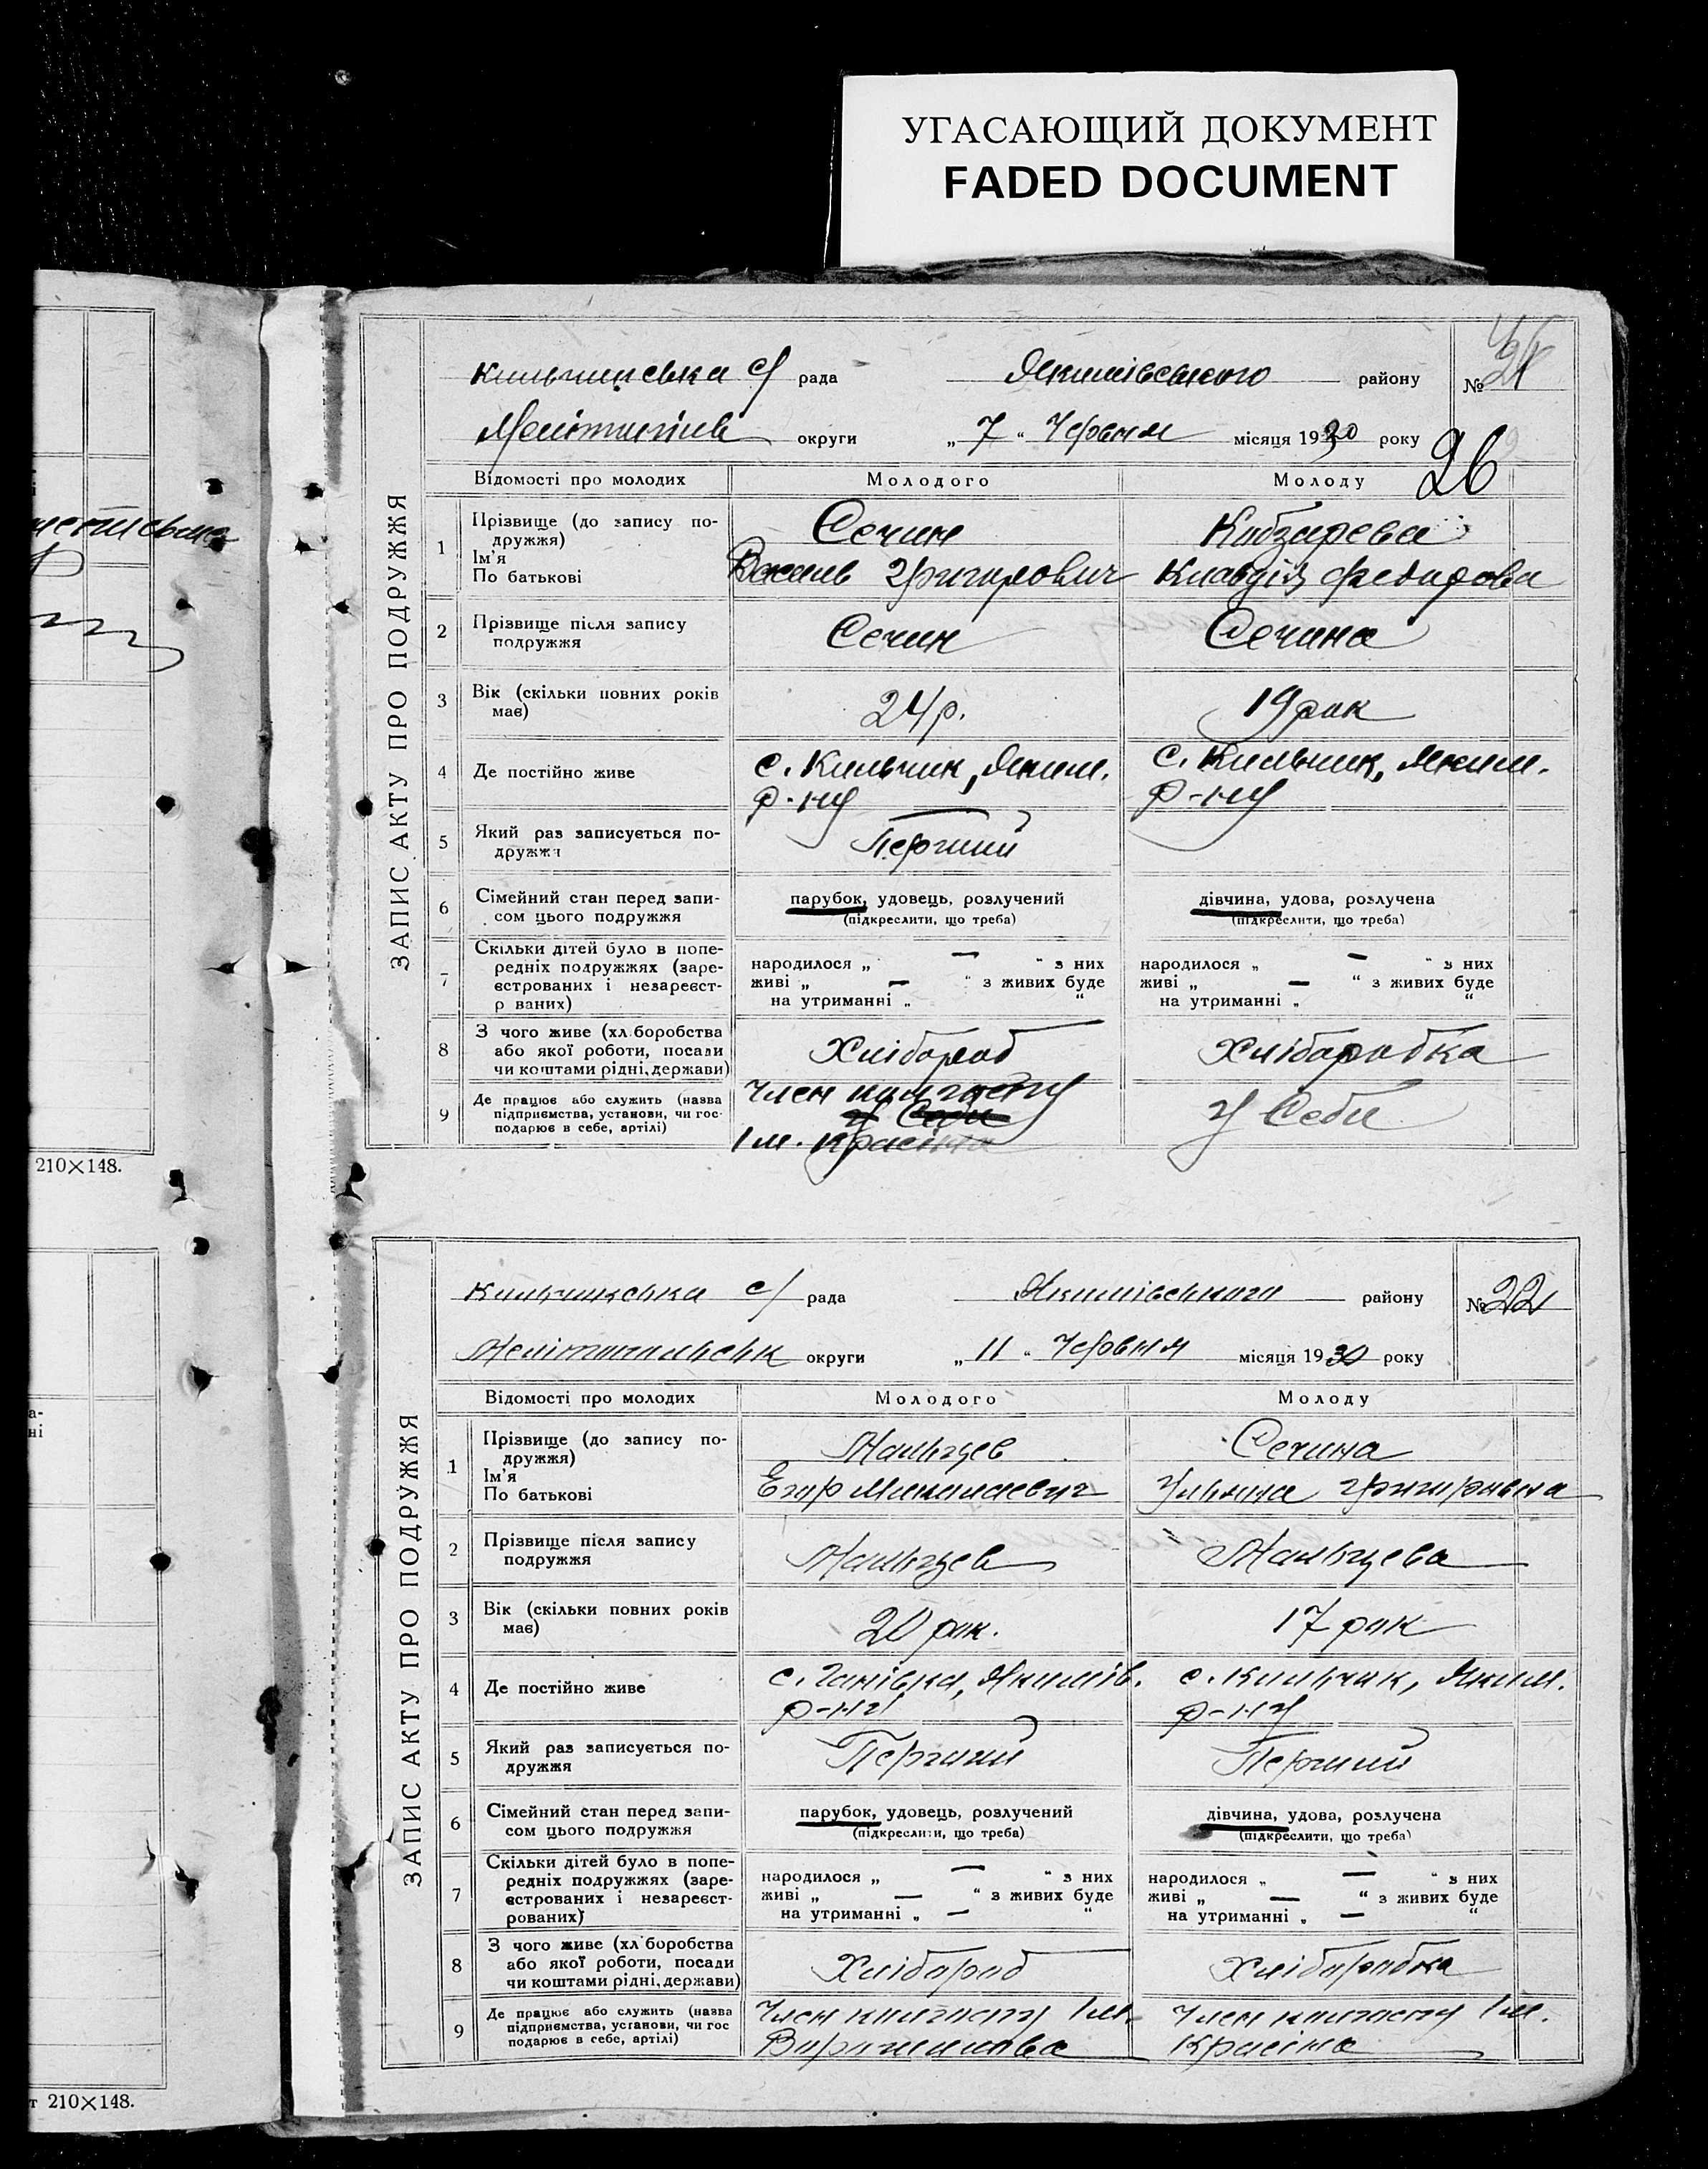 УГАСАЮЩИЙ ДОКУМЕНТ
FADED DOCUMENT
210×148.
т 210×148.
ЗАПИС АКТУ ПРО ПОДРУЖЖЯ
Кильчицська с/ рада Якимівського району №
округи „ 7 “ Червня місяця 1930 року
26
Відомості про молодих Молодого Молоду
1 Прізвище (до запису по-
дружжя)
Ім'я
По батькові
Сечин Кобзарева
Василь Григорович Клавдія Федорова
2 Прізвище після запису
подружжя
Сечин Сечина
3 Вік (скільки повних років
має)
24 р. 19 рок
4 Де постійно живе
с. Кильчик, Яким. с. Кильчик, Яким.
р-ну р-ну
5 Який раз записується по-
дружжя
Перший
6 Сімейний стан перед запи-
сом цього подружжя
парубок, удовець, розлучений дівчина, удова, розлучена
(підкреслити, що треба) (підкреслити, що треба)
7 Скільки дітей було в попе-
редніх подружжях (заре-
єстрованих і незареєст-
р ваних)
народилося „ — “ з них народилося „ — “ з них
живі „ — “ з живих буде живі „ — “ з живих буде
на утриманні „ “ на утриманні „ “
8 З чого живе (хл боробства
або якої роботи, посади
чи коштами рідні, держави)
Хлібороб Хліборобка
9 Де працює або служить (назва
підприємства, установи, чи гос-
подарює в себе, артілі)
Член колгоспу
у Себи у Себи
Ім. Красіна
ЗАПИС АКТУ ПРО ПОДРУЖЖЯ
Кильчикська с/ рада Якимівського району № 22
Мелітопильськ округи „ 11 “ Червня місяця 1930 року
Відомості про молодих Молодого Молоду
1 Прізвище (до запису по-
дружжя)
Ім'я
По батькові
Мальцев Сечина
Егор Миколаевич Ульяна Григоровна
2 Прізвище після запису
подружжя
Мальцев Мальцева
3 Вік (скільки повних років
має)
20 рок. 17 рок
4 Де постійно живе
с. Ганівка, Якимів. с. Кильчик, Яким.
р-ну р-ну
5 Який раз записується по-
дружжя
Перший Перший
6 Сімейний стан перед запи-
сом цього подружжя
парубок, удовець, розлучений дівчина, удова, розлучена
(підкреслити, що треба) (підкреслити, що треба)
7 Скільки дітей було в попе-
редніх подружжях (заре-
єстрованих і незареєст-
рованих)
народилося „ — “ з них народилося „ — “ з них
живі „ — “ з живих буде живі „ — “ з живих буде
на утриманні „ — “ на утриманні „ — “
8 З чого живе (хл боробства
або якої роботи, посади
чи коштами рідні, держави)
Хлібороб Хліборобка
9 Де працює або служить (назва
підприємства, установи, чи гос
подарює в себе, артілі)
Член колгоспу Ім. Член колгоспу Ім.
Ворошилова Красіна